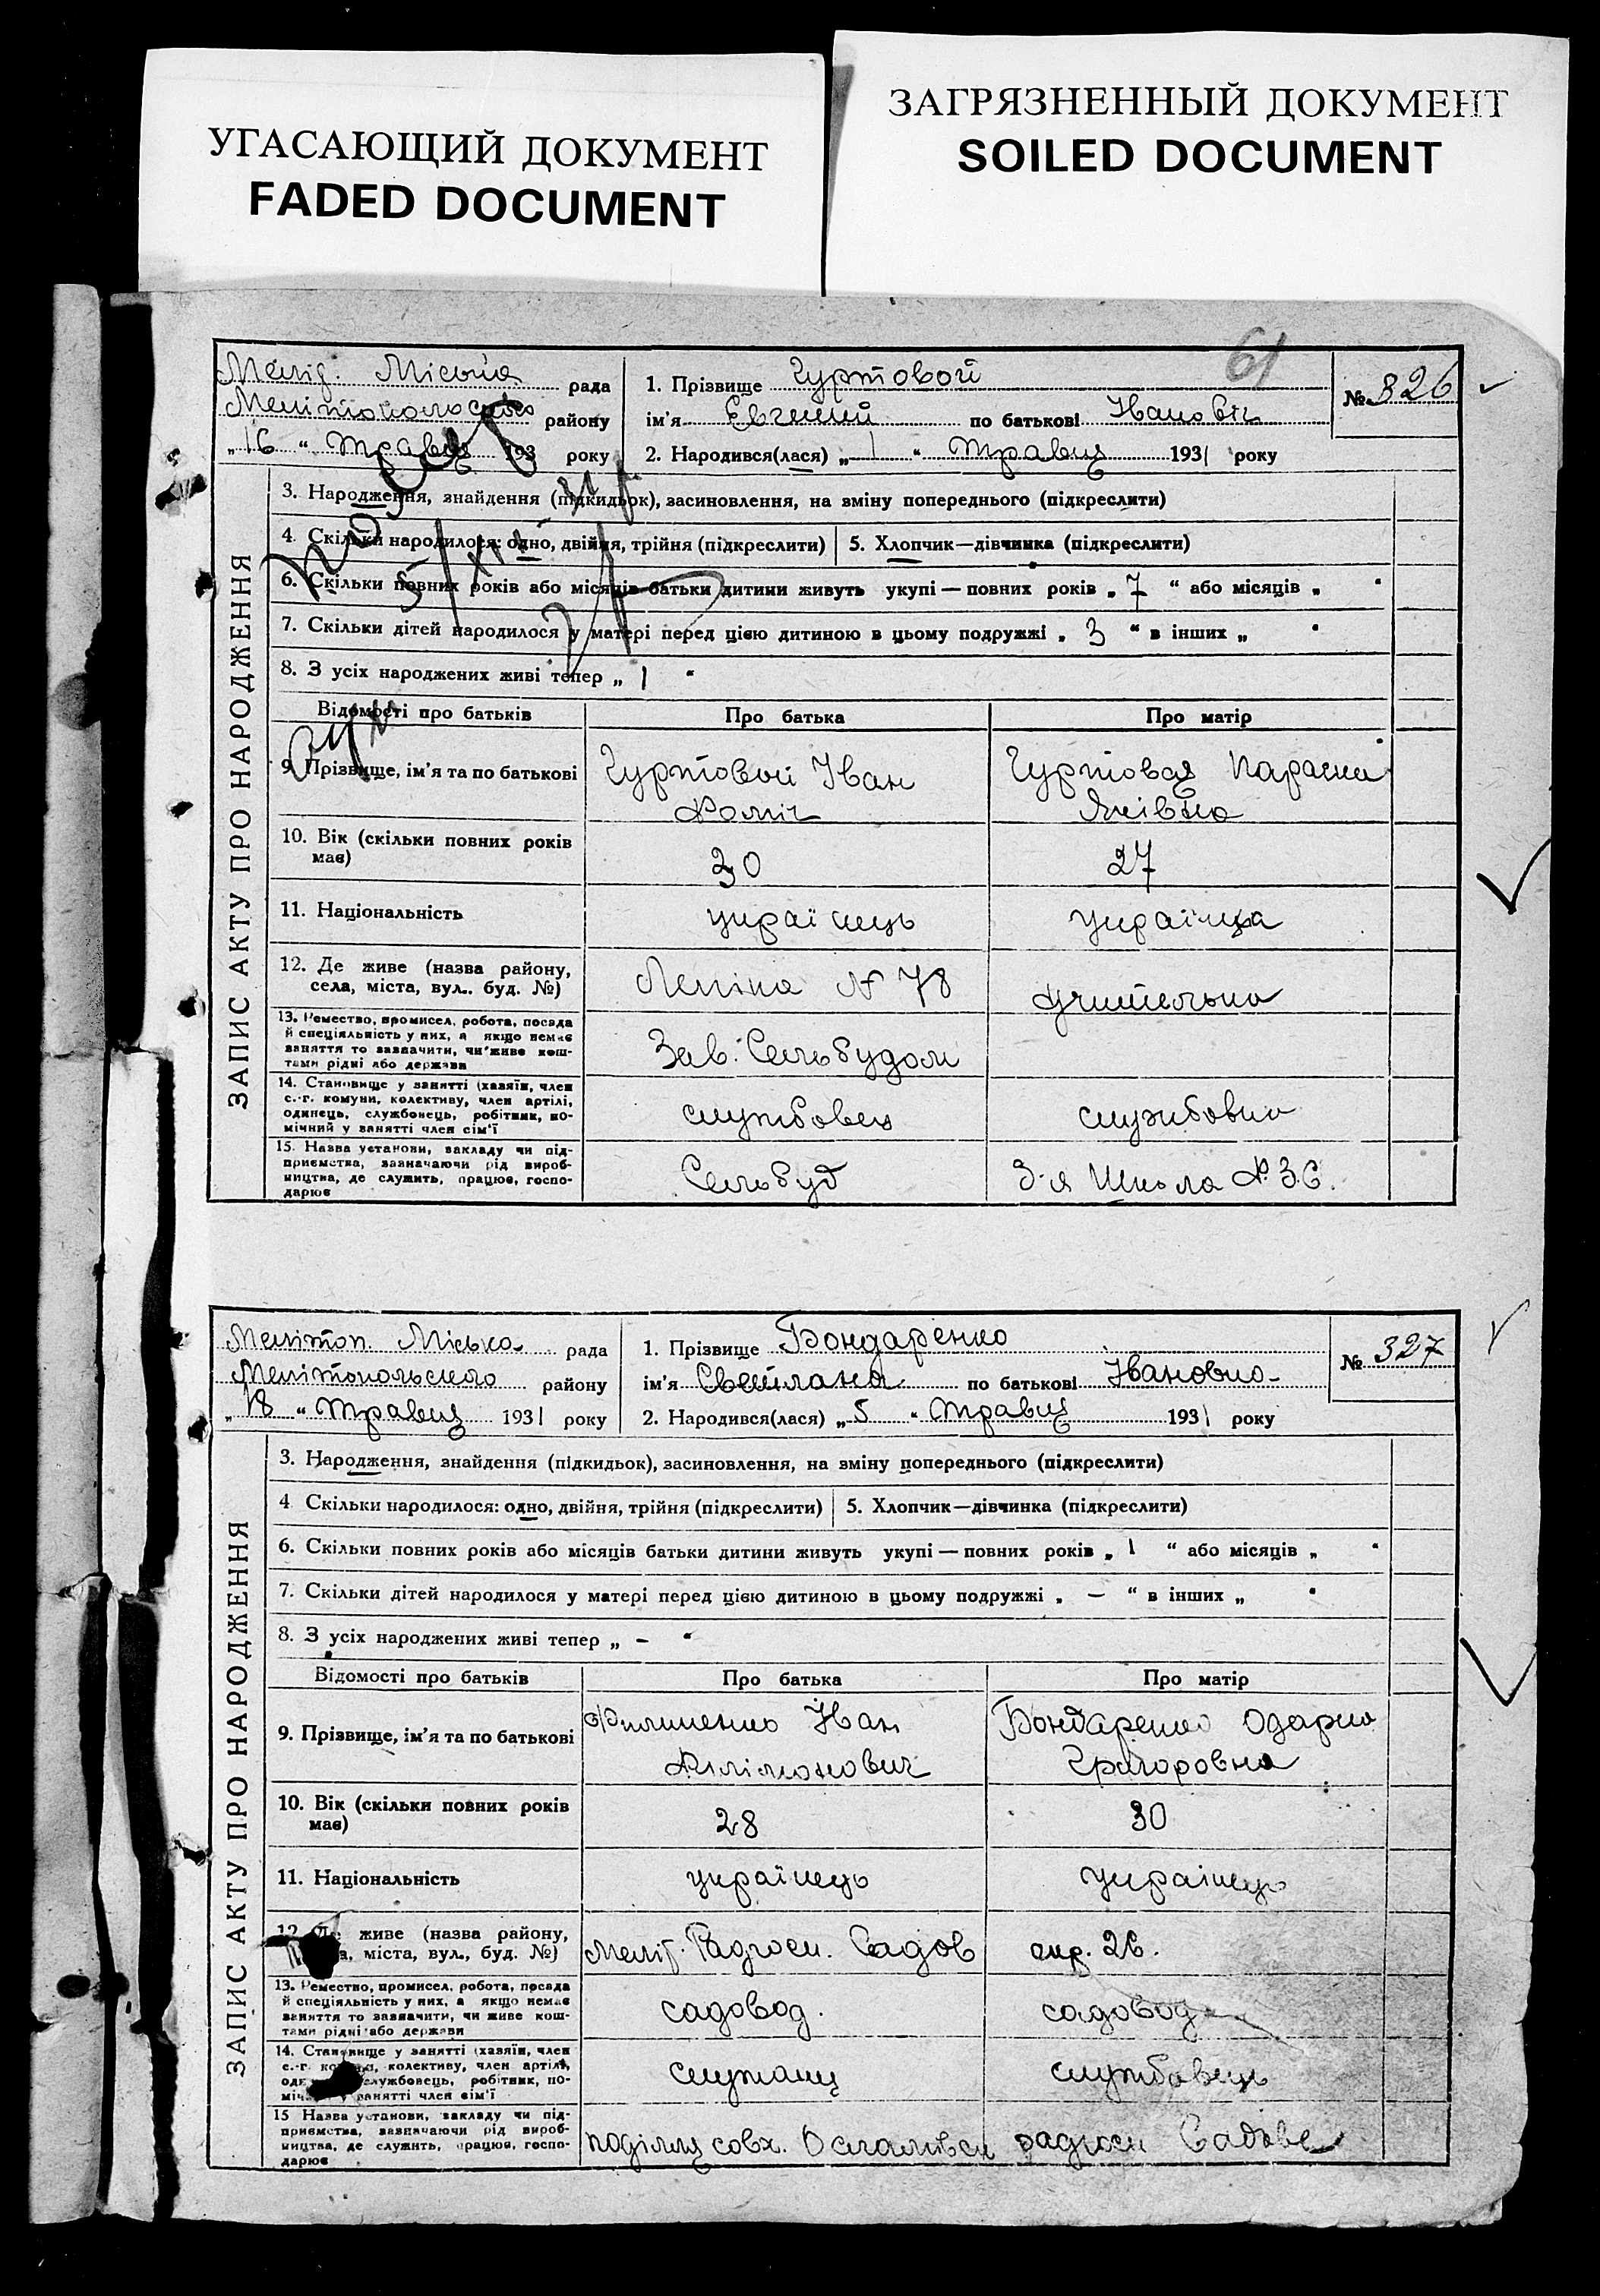 УГАСАЮЩИЙ ДОКУМЕНТ
FADED DOCUMENT
ЗАГРЯЗНЕННЫЙ ДОКУМЕНТ
SOILED DOCUMENT
61
Меліт. Міська рада
Мелітопольського району
„16“ Травця 193 року
1. Прізвище Гуртовой
ім'я Евгений по батькові Іванович
2. Народився(лася) „1“ Травця 1931 року
№ 326
ЗАПИС АКТУ ПРО НАРОДЖЕННЯ
3. Народження, знайдення (підкидьок), засиновлення, на зміну попереднього (підкреслити)
4. Скільки народилося: одно, двійня, трійня (підкреслити)
5. Хлопчик—дівчинка (підкреслити)
6. Скільки повних років або місяців батьки дитини живуть укупі — повних років „7“ або місяців „ “
7. Скільки дітей народилося у матері перед цією дитиною в цьому подружжі „3“ в інших „ “
8. З усіх народжених живі тепер „1“
Відомості про батьків Про батька Про матір
9. Прізвище, ім'я та по батькові
Гуртовой Іван
Гуртовая Параска
Яківна
10. Вік (скільки повних років має) 30 27
11. Національність українець українка
12. Де живе (назва району, села, міста, вул., буд. №)
Леніна № 78
учителька
13. Ремество, промисел, робота, посада й спеціяльність у них, а якщо немає заняття то зазначити, чи живе коштами рідні або держави
Зав. Сельбудом
14. Становище у занятті (хазяїн, член с.-г. комуни, колективу, член артілі, одинець, службовець, робітник, помічний у занятті член сім'ї
службовец службовка
15. Назва установи, закладу чи підприємства, зазначаючи рід виробництва, де служить, працює, господарює
Сельбуд 3-я Школа
Мелітоп. Міська рада
Мелітопольського району
„18“ Травця 1931 року
1. Прізвище Бондаренко
ім'я Светлана по батькові Івановна
2. Народився(лася) „5“ Травця 1931 року
№ 327
ЗАПИС АКТУ ПРО НАРОДЖЕННЯ
3. Народження, знайдення (підкидьок), засиновлення, на зміну попереднього (підкреслити)
4. Скільки народилося: одно, двійня, трійня (підкреслити)
5. Хлопчик—дівчинка (підкреслити)
6. Скільки повних років або місяців батьки дитини живуть укупі — повних років „1“ або місяців „ “
7. Скільки дітей народилося у матері перед цією дитиною в цьому подружжі „ — “ в інших „ “
8. З усіх народжених живі тепер „ - “
Відомості про батьків Про батька Про матір
9. Прізвище, ім'я та по батькові
Іван
Бондаренко Одарка
Григоровна
10. Вік (скільки повних років має) 28 30
11. Національність українець українець
12. Де живе (назва району, села, міста, вул., буд. №)
Меліт. Радгосп. Садов 26.
13. Ремество, промисел, робота, посада й спеціяльність у них, а якщо немає заняття то зазначити, чи живе коштами рідні або держави
садовод. садовод
14. Становище у занятті (хазяїн, член с.-г. колективу, член артілі, службовець, робітник, помічний у занятті член сім'ї
службовець
15 Назва установи, закладу чи підприємства, зазначаючи рід виробництва, де служить, працює, господарює
совх. радгосп Садове